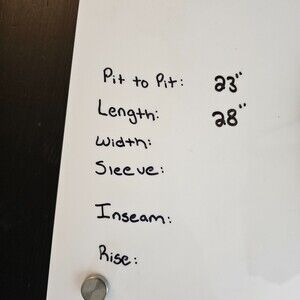 Pit to Pit: 23"
Length: 28"
Width:
Sleeve:
Inseam:
Rise: